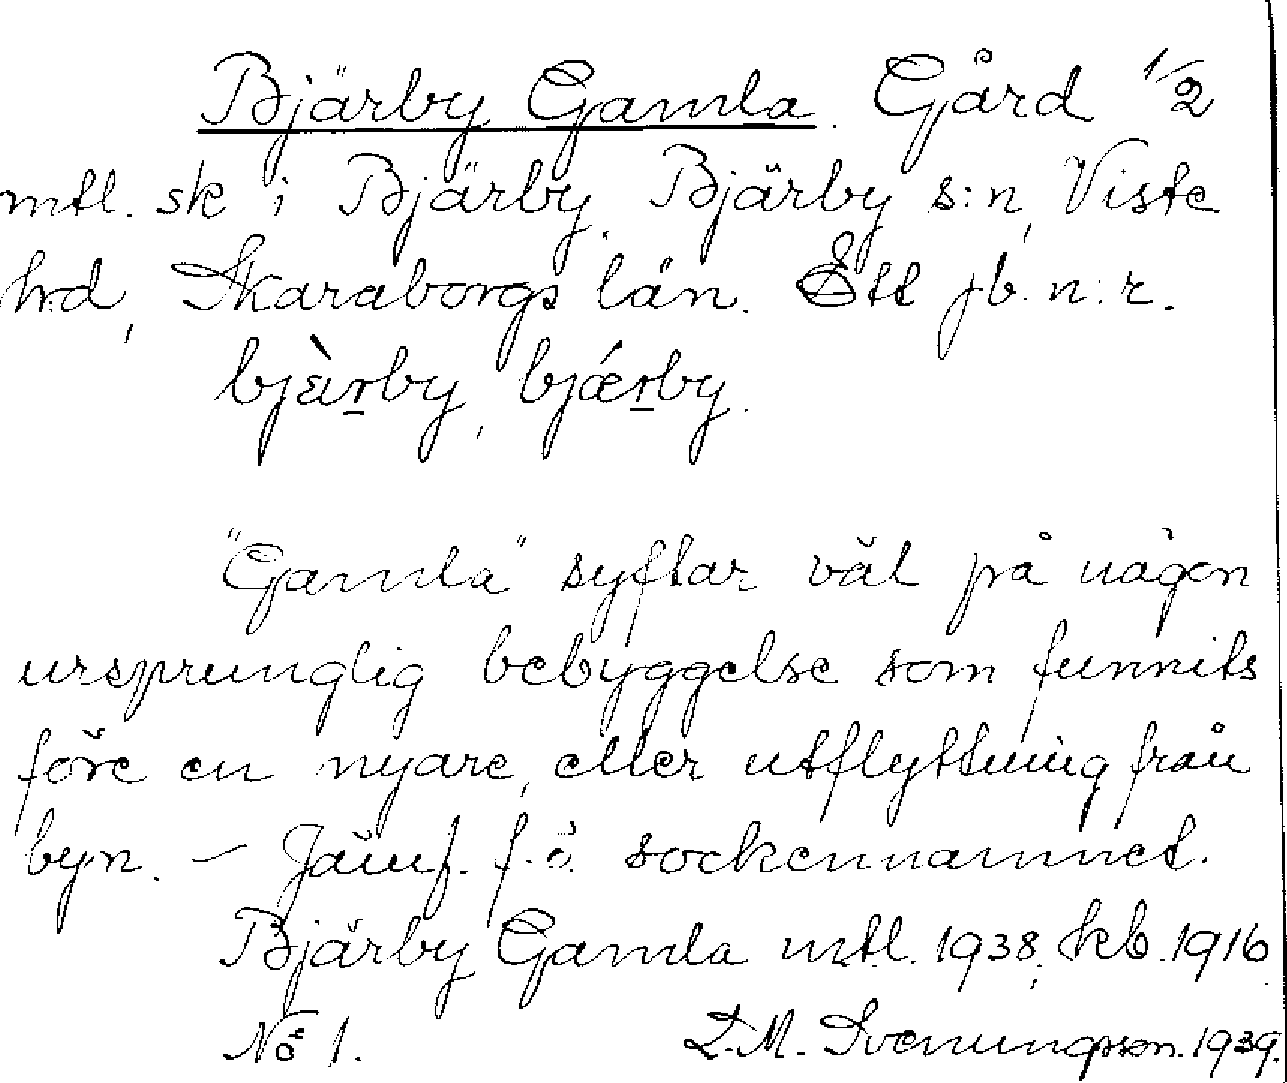 Bjärby Gamla. Gård 1/2
mtl. sk i Bjärby, Bjärby s:n, Viste
hd, Skaraborgs län. Ett jb. n:r.
bjæ̀rby, bjǽrby.
"Gamla" syftar väl på någon
ursprunglig bebyggelse som funnits
före en nyare, eller utflyttning från
byn. — Jämf. f. ö. sockennamnet.
Bjärby Gamla mtl. 1938, kb. 1916
No 1. L.M. Svenungsson. 1939.